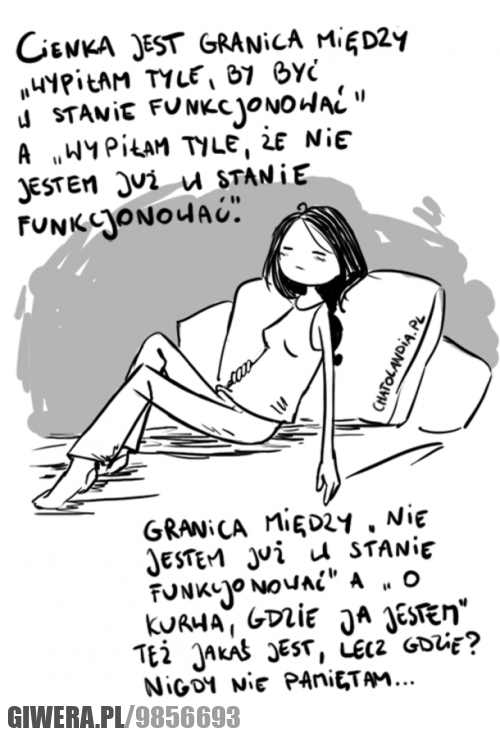 CIENKA JEST GRANICA MIĘDZY
„WYPIŁAM TYLE, BY BYĆ
W STANIE FUNKCJONOWAĆ"
A „WYPIŁAM TYLE, ŻE NIE
JESTEM JUŻ W STANIE
FUNKCJONOWAĆ".
CHATOLANDIA.PL
GRANICA MIĘDZY „NIE
JESTEM JUŻ W STANIE
FUNKCJONOWAĆ" A „O
KURWA, GDZIE JA JESTEM"
TEŻ JAKAŚ JEST, LECZ GDZIE?
NIGDY NIE PAMIĘTAM...
GIWERA.PL/9856693